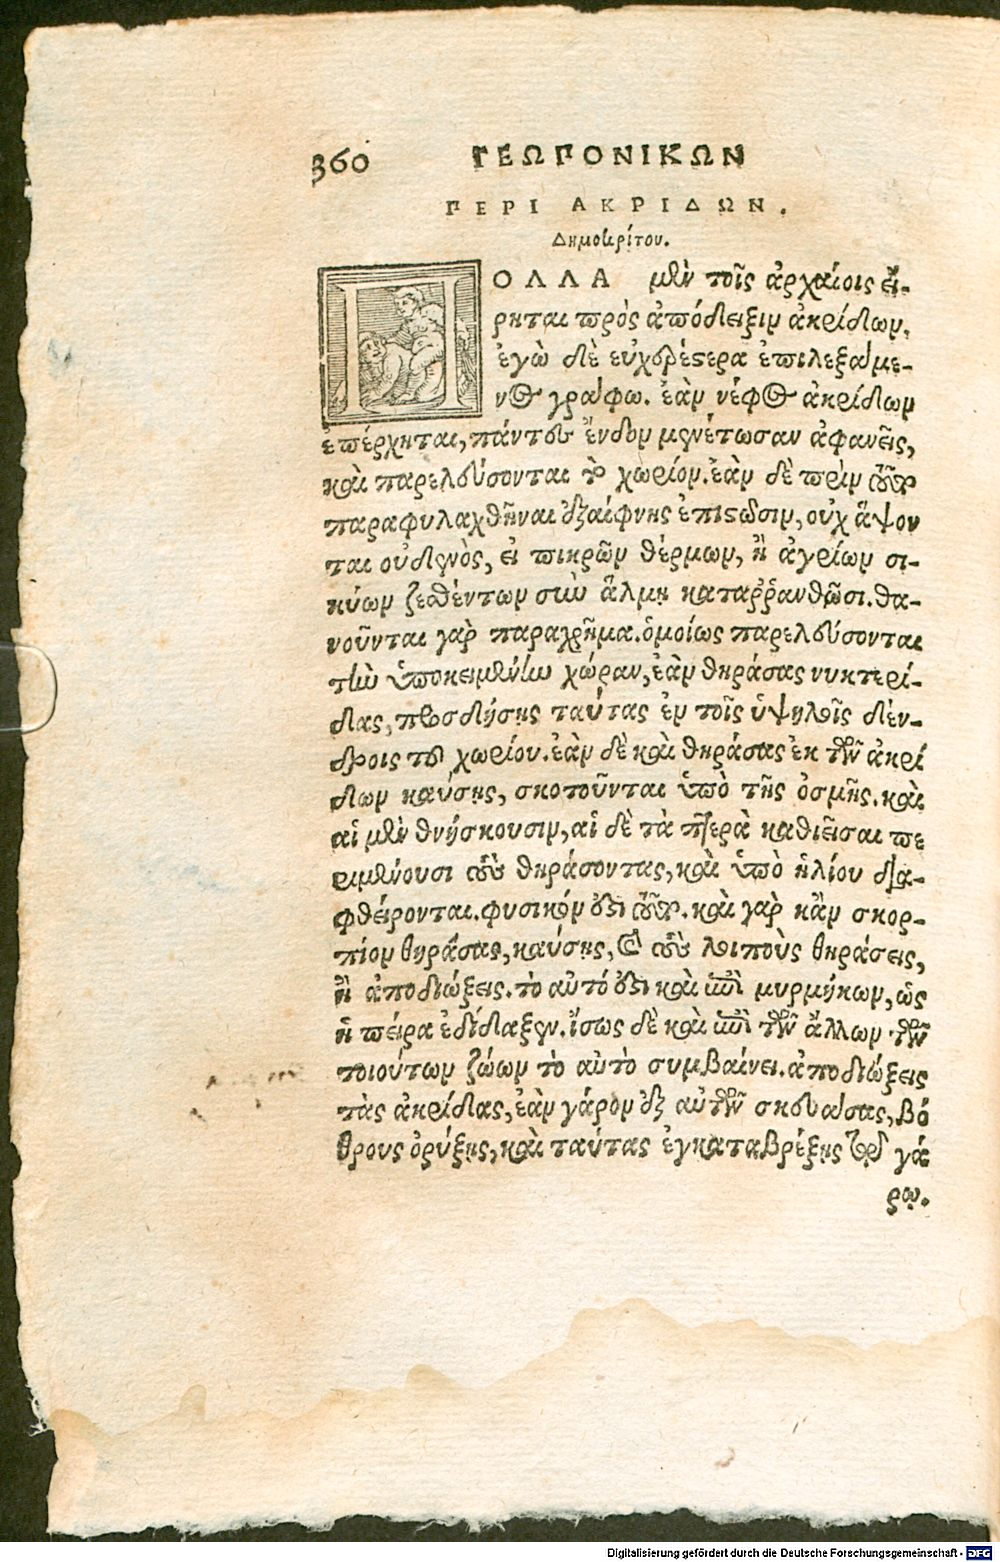 360 ΓΕΩΠΟΝΙΚΩΝ
ΠΕΡΙ ΑΚΡΙΔΩΝ.
Δημοκρίτου.
ΠΟΛΛΑ μὲν τοῖς ἀρχαίοις εἴ-
ρηται πρὸς ἀπόδειξιν ἀκρίδων,
ἐγὼ δὲ εὐχερέστερα ἐπιλεξάμε-
νος γράφω. ἐὰν νέφος ἀκρίδων
ἐπέρχηται, πάντες ἔνδον μενέτωσαν ἀφανεῖς,
καὶ παρελεύσονται τὸ χωρίον. ἐὰν δὲ πρὶν τοῦτο
παραφυλαχθῆναι ἐξαίφνης ἐπιστῶσιν, οὐχ ἅψον
ται οὐδενὸς, εἰ πικρῶν θέρμων, ἢ ἀγρίων σι-
κύων ζεσθέντων σὺν ἅλμῃ καταῤῥανθῶσι. θα-
νοῦνται γὰρ παραχρῆμα. ὁμοίως παρελεύσονται
τὴν ὑποκειμένην χώραν, ἐὰν θηράσας νυκτερί-
δας, προσδήσῃς ταύτας ἐν τοῖς ὑψηλοῖς δέν-
δροις τοῦ χωρίου. ἐὰν δὲ καὶ θηράσας ἐκ τῶν ἀκρί
δων καύσῃς, σκοτοῦνται ὑπὸ τῆς ὀσμῆς. καὶ
αἱ μὲν θνήσκουσιν, αἱ δὲ τὰ πτερὰ καθιεῖσαι πε
ριμένουσι τοὺς θηράσοντας, καὶ ὑπὸ ἡλίου δια-
φθείρονται. φυσικόν ἐστι τοῦτο. καὶ γὰρ κἂν σκορ-
πίον θηράσας, καύσῃς, καὶ τοὺς λοιποὺς θηράσεις,
ἢ ἀποδιώξεις. τὸ αὐτό ἐστι καὶ ἐπὶ μυρμήκων, ὡς
ἡ πεῖρα ἐδίδαξεν. ἴσως δὲ καὶ ἐπὶ τῶν ἄλλων τῶν
τοιούτων ζώων τὸ αὐτὸ συμβαίνει. ἀποδιώξεις
τὰς ἀκρίδας, ἐὰν γάρον ἐξ αὐτῶν σκευάσας, βό
θρους ὀρύξῃς, καὶ ταύτας ἐγκαταβρέξῃς τῷ γά
ρῳ.
Digitalisierung gefördert durch die Deutsche Forschungsgemeinschaft - DFG